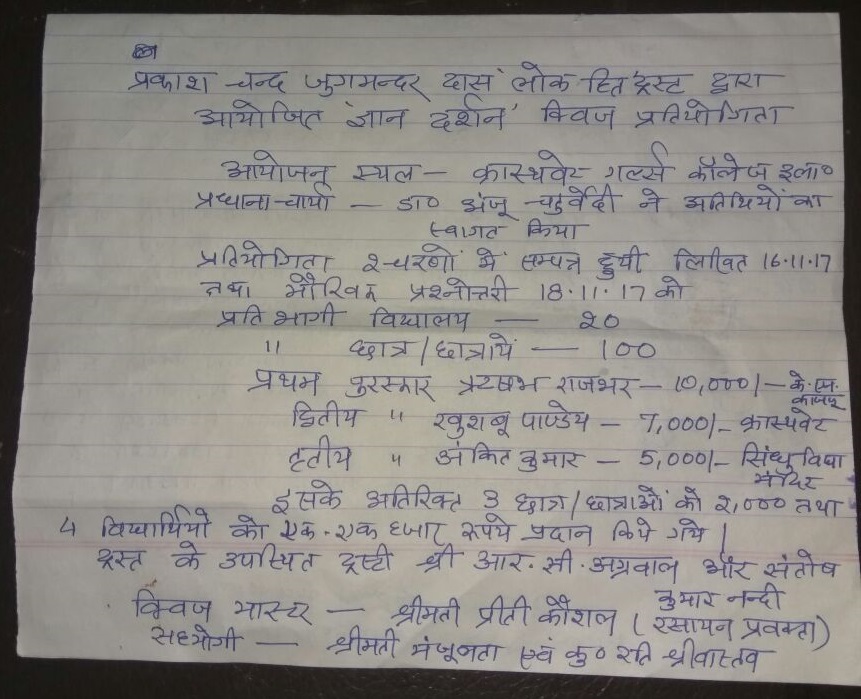 प्रकाश चन्द जुगमन्दर दास 'लोक हित' ट्रस्ट द्वारा
आयोजित 'ज्ञान दर्शन' क्विज प्रतियोगिता
आयोजन स्थल — क्रास्थवेट गर्ल्स कॉलेज इला०
प्रधानाचार्या — डा० अंजू चतुर्वेदी ने अतिथियों का
स्वागत किया
प्रतियोगिता २ चरणों में सम्पन्न हुयी लिखित 16.11.17
तथा मौखिक प्रश्नोत्तरी 18.11.17 को
प्रतिभागी विद्यालय — 20
" छात्र/छात्रायें — 100
प्रथम पुरस्कार ऋषभ राजभर — 10,000/- के.एन.
द्वितीय " खुशबू पाण्डेय — 7,000/- क्रास्थवेट
तृतीय " अंकित कुमार — 5,000/- सिंधु विद्या
मंदिर
इसके अतिरिक्त 3 छात्र/छात्राओं को 2,000 तथा
4 विद्यार्थियों को एक-एक हजार रूपये प्रदान किये गये।
ट्रस्ट के उपस्थित ट्रस्टी श्री आर.सी.अग्रवाल और संतोष
कुमार नन्दी
क्विज मास्टर — श्रीमती प्रीती कौशल (रसायन प्रवक्ता)
सहयोगी — श्रीमती मंजूलता एवं कु० रति श्रीवास्तव